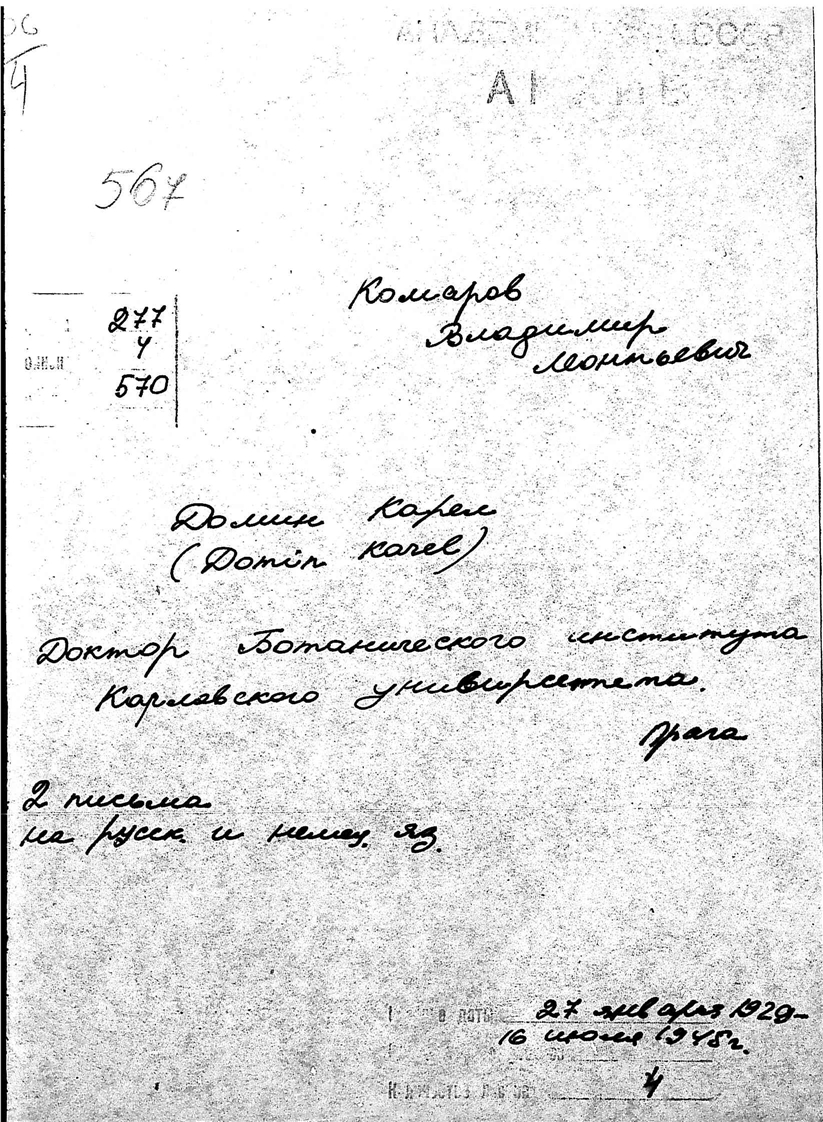 4
567
277
4
570
Комаров
Владимир
Леонтьевич
Домин Карел
(Domin Karel)
Доктор Ботанического института
Карловского университета.
Прага
2 письма
на русск. и немец. яз.
27 января 1929-
16 июля 1945г.
4